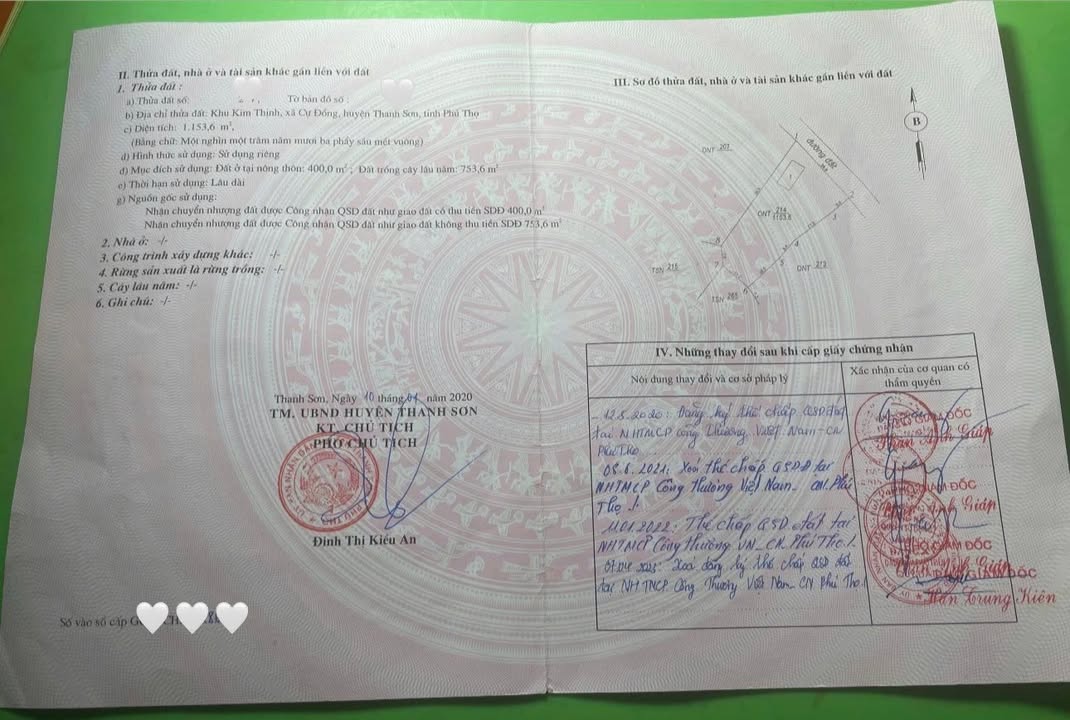 II. Thửa đất, nhà ở và tài sản khác gắn liền với đất
1. Thửa đất :
a) Thửa đất số: Tờ bản đồ số :
b) Địa chỉ thửa đất: Khu Kim Thịnh, xã Cự Đồng, huyện Thanh Sơn, tỉnh Phú Thọ
c) Diện tích: 1.153,6 m²,
(Bằng chữ: Một nghìn một trăm năm mươi ba phẩy sáu mét vuông)
d) Hình thức sử dụng: Sử dụng riêng
đ) Mục đích sử dụng: Đất ở tại nông thôn: 400,0 m² ; Đất trồng cây lâu năm: 753,6 m²
e) Thời hạn sử dụng: Lâu dài
g) Nguồn gốc sử dụng:
Nhận chuyển nhượng đất được Công nhận QSD đất như giao đất có thu tiền SDĐ 400,0 m²
Nhận chuyển nhượng đất được Công nhận QSD đất như giao đất không thu tiền SDĐ 753,6 m²
2. Nhà ở: -/-
3. Công trình xây dựng khác: -/-
4. Rừng sản xuất là rừng trồng: -/-
5. Cây lâu năm: -/-
6. Ghi chú: -/-
Thanh Sơn, Ngày 10 tháng 01 năm 2020
TM. UBND HUYỆN THANH SƠN
KT. CHỦ TỊCH
PHÓ CHỦ TỊCH
Đinh Thị Kiều An
Số vào sổ cấp
III. Sơ đồ thửa đất, nhà ở và tài sản khác gắn liền với đất
B
đường đất
ONT 207
ONT 214
1153.6
ONT 213
TSN 215
TSN 265
IV. Những thay đổi sau khi cấp giấy chứng nhận
Nội dung thay đổi và cơ sở pháp lý
Xác nhận của cơ quan có thẩm quyền
- 12.5.2020: Đăng ký thế chấp QSD đất
tại NHTMCP Công Thương Việt Nam - CN
Phú Thọ
08.6.2021: Xoá thế chấp QSDĐ tại
NHTMCP Công Thương Việt Nam - CN. Phú
Thọ ./.
11.01.2022: Thế chấp QSD đất tại
NHTMCP Công thương VN - CN. Phú Thọ ./.
07.04.2025: Xoá đăng ký thế chấp QSD đất
tại NHTMCP Công Thương Việt Nam CN Phú Thọ
GIÁM ĐỐC
Giáp
GIÁM ĐỐC
Anh Giáp
GIÁM ĐỐC
GIÁM ĐỐC
Trung Kiên